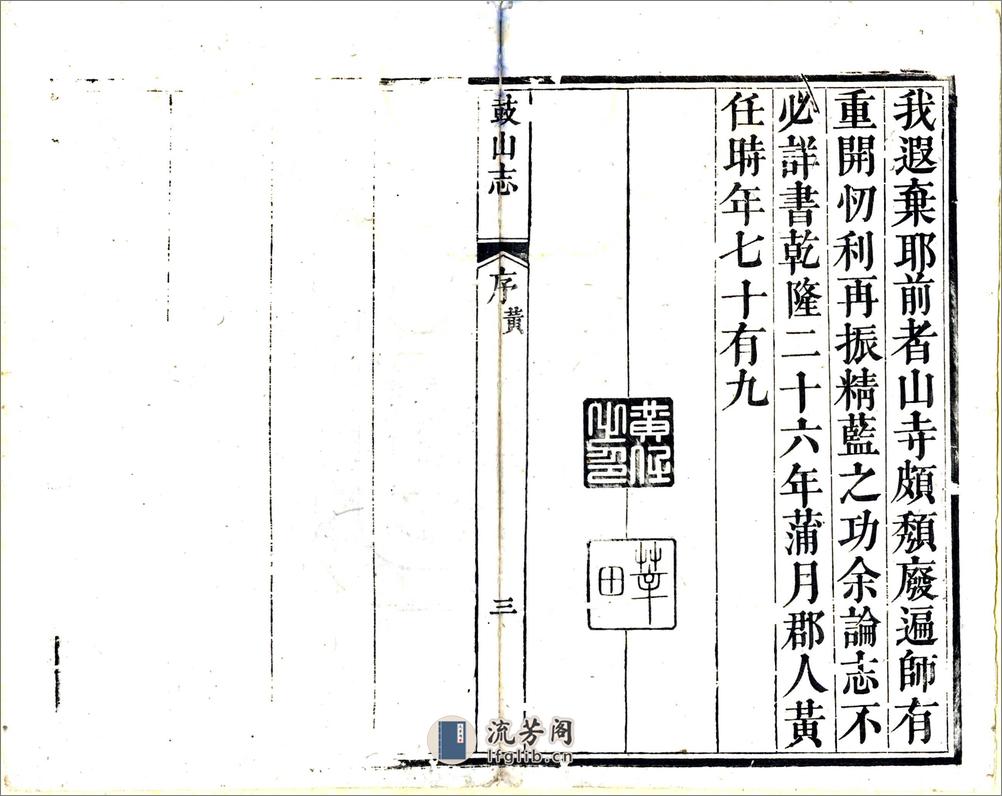 我遐棄耶前者山寺頗頽廢遍師有
重開忉利再振精藍之功余論志不
必詳書乾隆二十六年蒲月郡人黃
任時年七十有九
黃任之印
莘田
鼓山志
序
黃
三
流芳阁
lfglib.cn